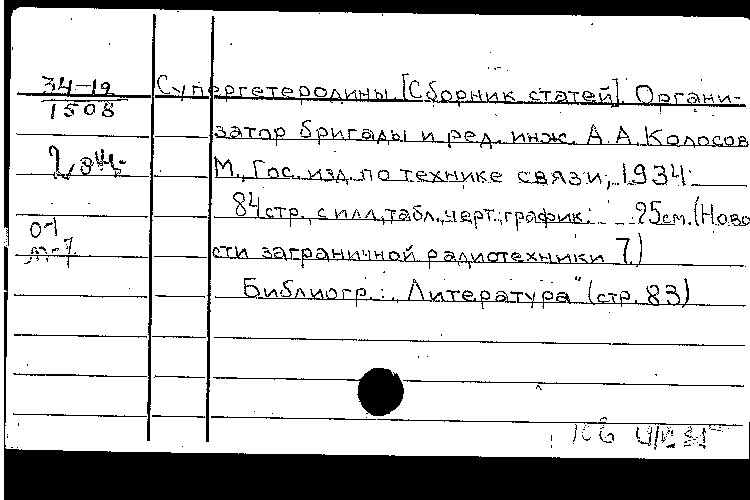 34-12
1508
Супергетеродины [Сборник статей]. Органи-
затор бригады и ред. инж. А.А. Колосов
М., Гос. изд. по технике связи, 1934.
84 стр., с илл., табл., черт., график. 25 см. (Ново
сти заграничной радиотехники 7)
Библиогр.: „Литература" (стр. 83)
2 экз.
0-1
т-7